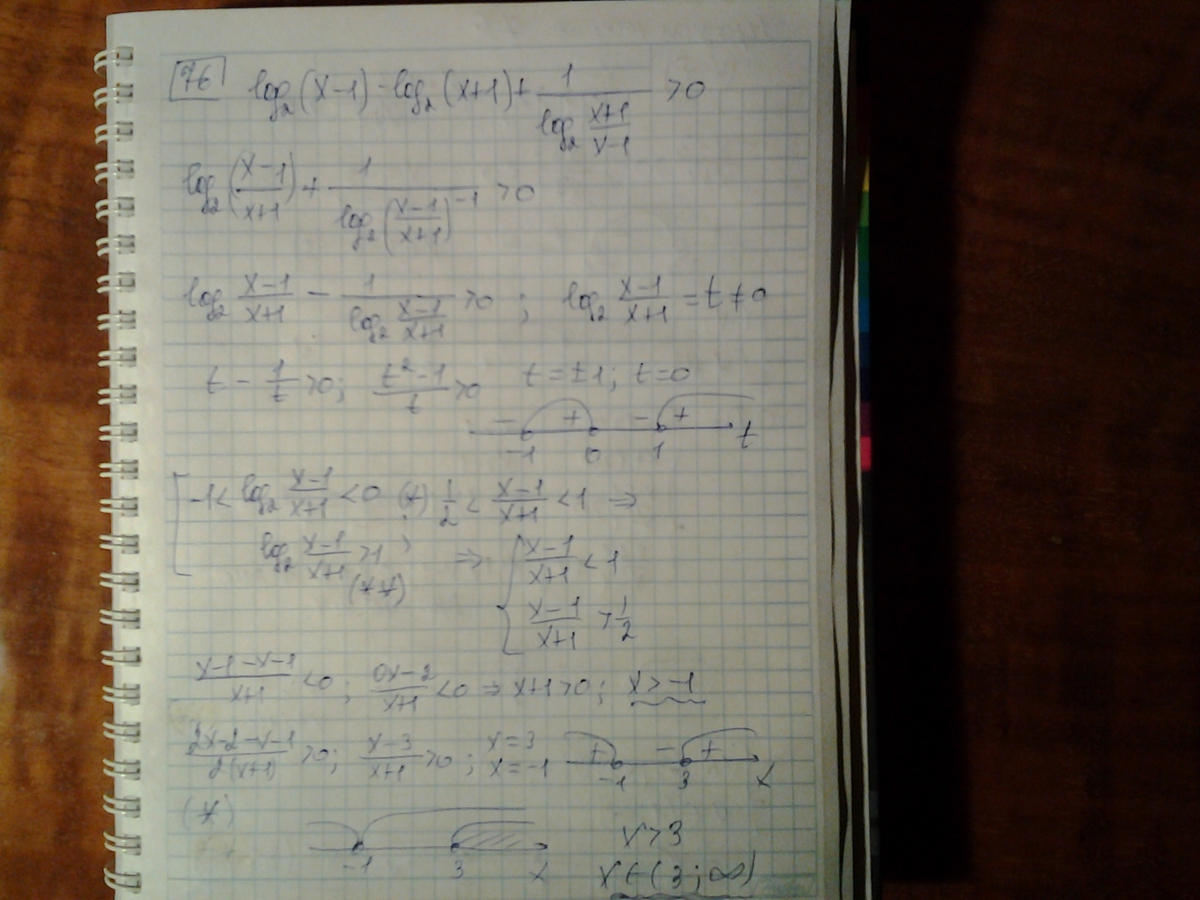 76 log₂(x-1) - log₂(x+1) + 1/(log₂ (x+1)/(x-1)) >0
log₂((x-1)/(x+1)) + 1/(log₂((x-1)/(x+1))⁻¹) >0
log₂ (x-1)/(x+1) - 1/(log₂ (x-1)/(x+1)) >0 ; log₂ (x-1)/(x+1) = t ≠ 0
t - 1/t >0; (t²-1)/t >0 t = ±1; t=0
- + - +
-1 0 1 t
[ -1< log₂ (x-1)/(x+1) <0 (*) ; 1/2 < (x-1)/(x+1) < 1 ⇒
log₂ (x-1)/(x+1) >1 (**) ⇒ { (x-1)/(x+1) < 1
(x-1)/(x+1) > 1/2
(x-1-x-1)/(x+1) <0 ; (0x-2)/(x+1) <0 ⇒ x+1>0 ; x>-1
(2x-2-x-1)/(2(x+1)) >0; (x-3)/(x+1) >0 ; x=3 x=-1 + -1 - 3 + x
(*)
-1 3 x x>3
x∈(3;∞)